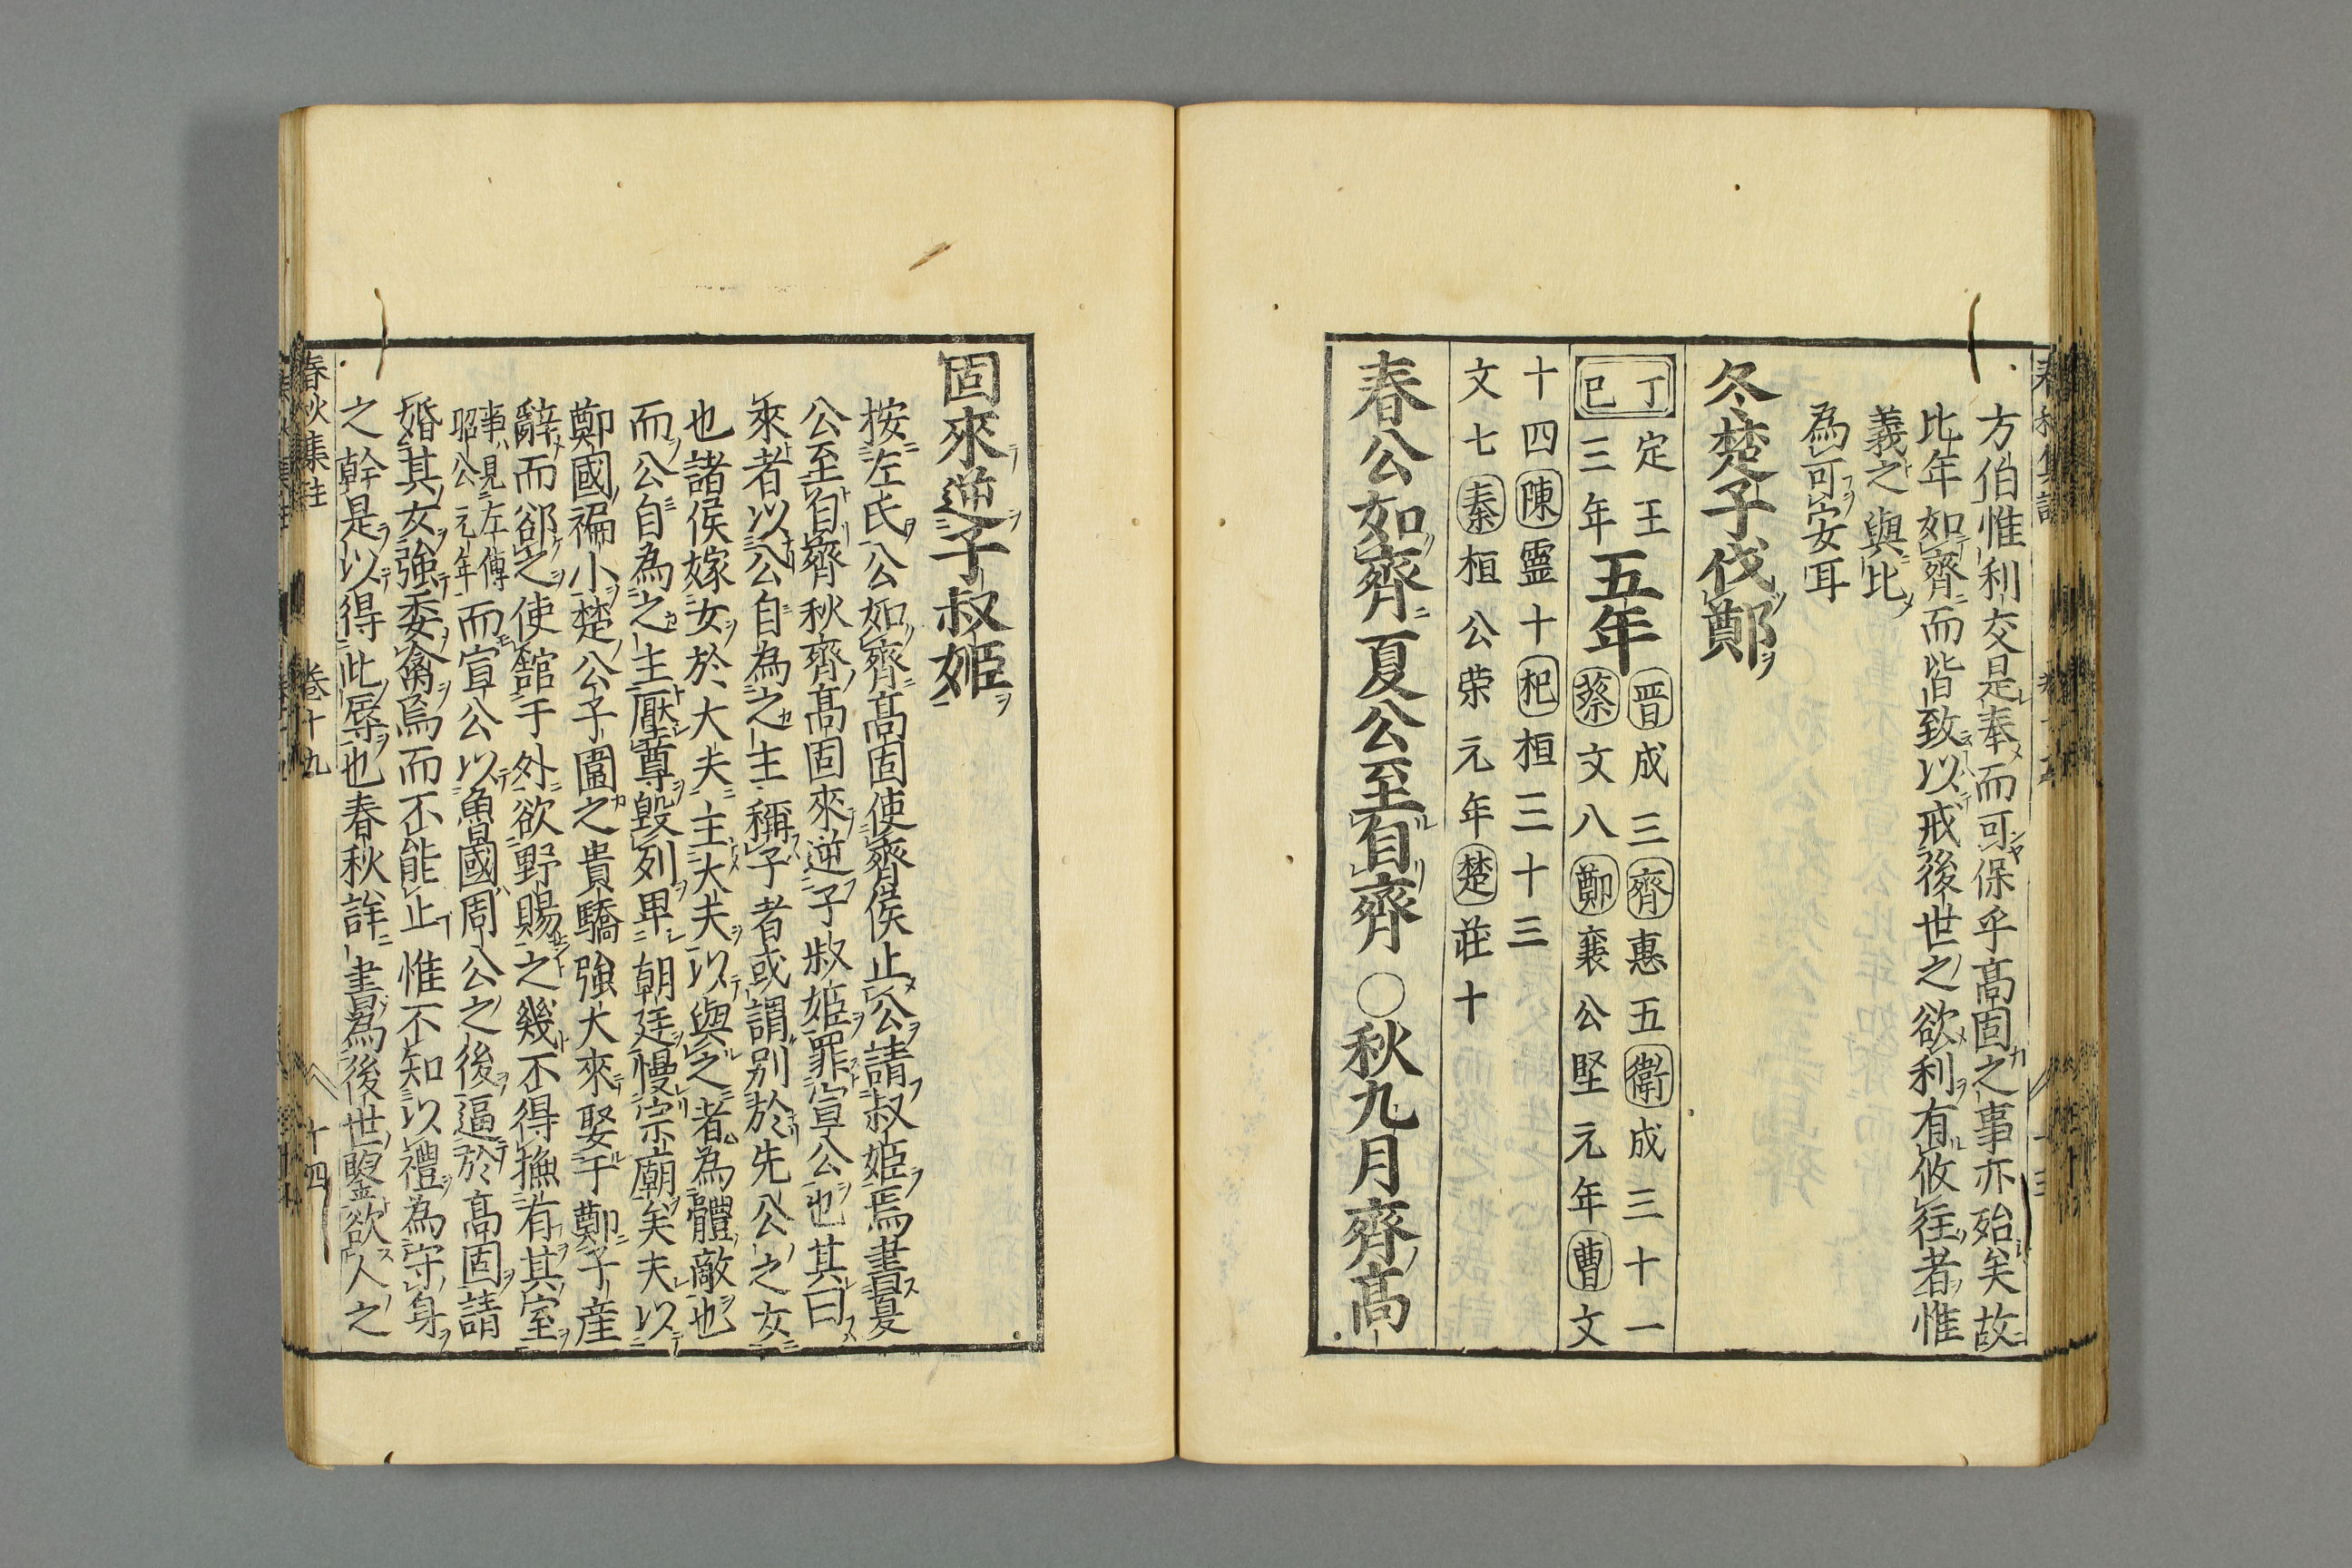 方伯惟利交是奉而可保乎高固之事亦殆矣故
比年如齊而皆致以戒後世之欲利有攸往者惟
義之與比
為可安耳
冬楚子伐鄭
丁巳
定王三年
五年
晉成三齊惠五衛成三十一
蔡文八鄭襄公堅元年曹文
十四陳靈十杞桓三十三
文七秦桓公荣元年楚莊十
春公如齊夏公至自齊〇秋九月齊高
固來逆子叔姬
按左氏公如齊高固使齊侯止公請叔姬焉書夏
公至自齊秋齊高固來逆子叔姬罪宣公也其曰
來者以公自為之主稱子者或謂别於先公之女
也諸侯嫁女於大夫主大夫以與之者為體敵也
而公自為之主壓尊毀列卑朝廷慢宗廟矣夫以
鄭國褊小楚公子圍之貴驕強大來娶于鄭子産
辭而郤之使舘于外欲野賜之幾不得撫有其室
事見左傳
昭公元年
而宣公以魯國周公之後逼於高固請
婚其女強委禽焉而不能止惟不知以禮為守身
之幹是以得此辱也春秋詳書為後世鑒欲人之
春秋集註 卷十九 十四